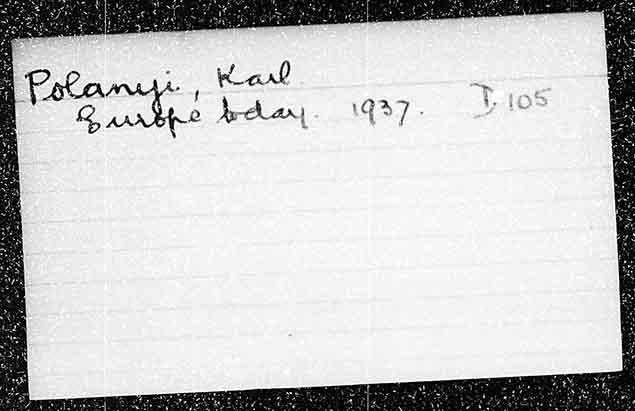 Polanyi, Karl.
Europe today. 1937. I. 105